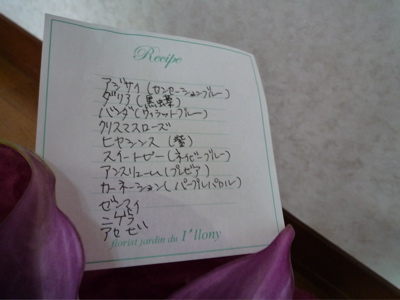 Recipe
アジサイ(センセーションブルー)
ダリア(黒蝶)
バンダ(ヴァネットブルー)
クリスマスローズ
ヒヤシンス(紫)
スイートピー(ネイビーブルー)
アンスリューム(プレビア)
カーネーション(パープルパウル)
ゼンマイ
ニゲラ
アセビ
florist jardin du I*llony